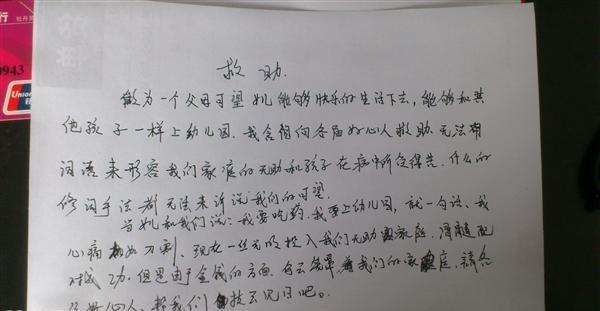 行
0943
Union
救助.
做为一个父母可望女儿能够快乐的生活下去,能够和其
他孩子一样上幼儿园.我含泪向各届好心人救助.无法用
词语来形容我们家庭的无助和孩子在病中所受得苦.什么的
修词手法都无法来诉说我们的可望.
当女儿和我们说:我要吃药.我要上幼儿园,就一句话、我
心痛如刀刺、现在一丝光明投入我们无助家庭.骨髓配
对成功.但是由于金钱的方面.乌云笼罩着我们的家庭,请各
好心人、帮我们拔云见日吧。